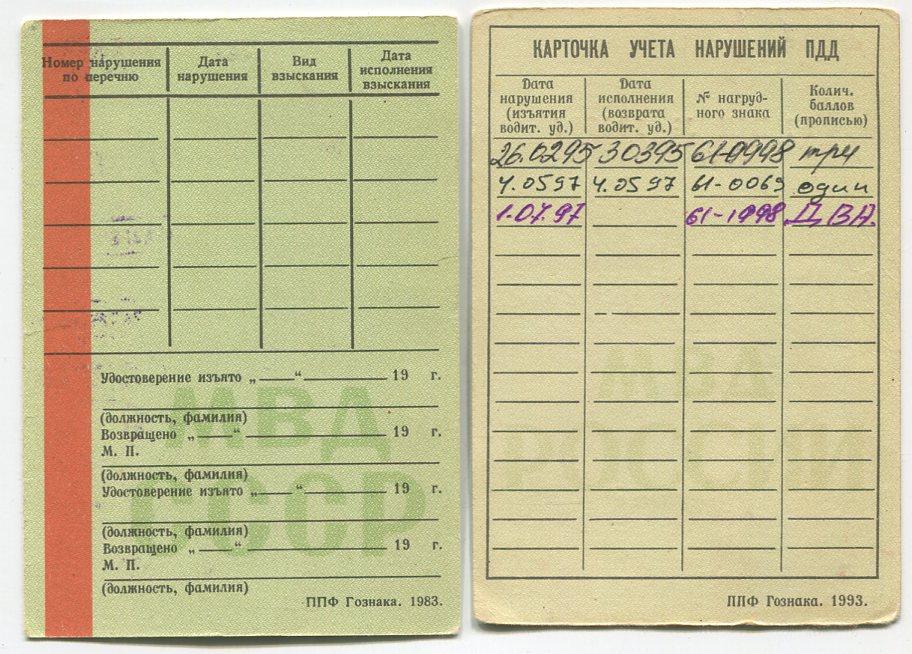 Номер нарушения по перечню
Дата нарушения
Вид взыскания
Дата исполнения взыскания
Удостоверение изъято „ “ 19 г.
(должность, фамилия)
Возвращено „ “ 19 г.
М. П.
(должность, фамилия)
Удостоверение изъято „ “ 19 г.
(должность, фамилия)
Возвращено „ “ 19 г.
М. П.
(должность, фамилия)
МВД
СССР
ППФ Гознака. 1983.
КАРТОЧКА УЧЕТА НАРУШЕНИЙ ПДД
Дата нарушения (изъятия водит. уд.)
Дата исполнения (возврата водит. уд.)
№ нагруд-ного знака
Колич. баллов (прописью)
26.0295 30395 61-0998 три
4.0597 4.0597 61-0069 один
1.07.97 61-1998 ДВА.
ППФ Гознака. 1993.